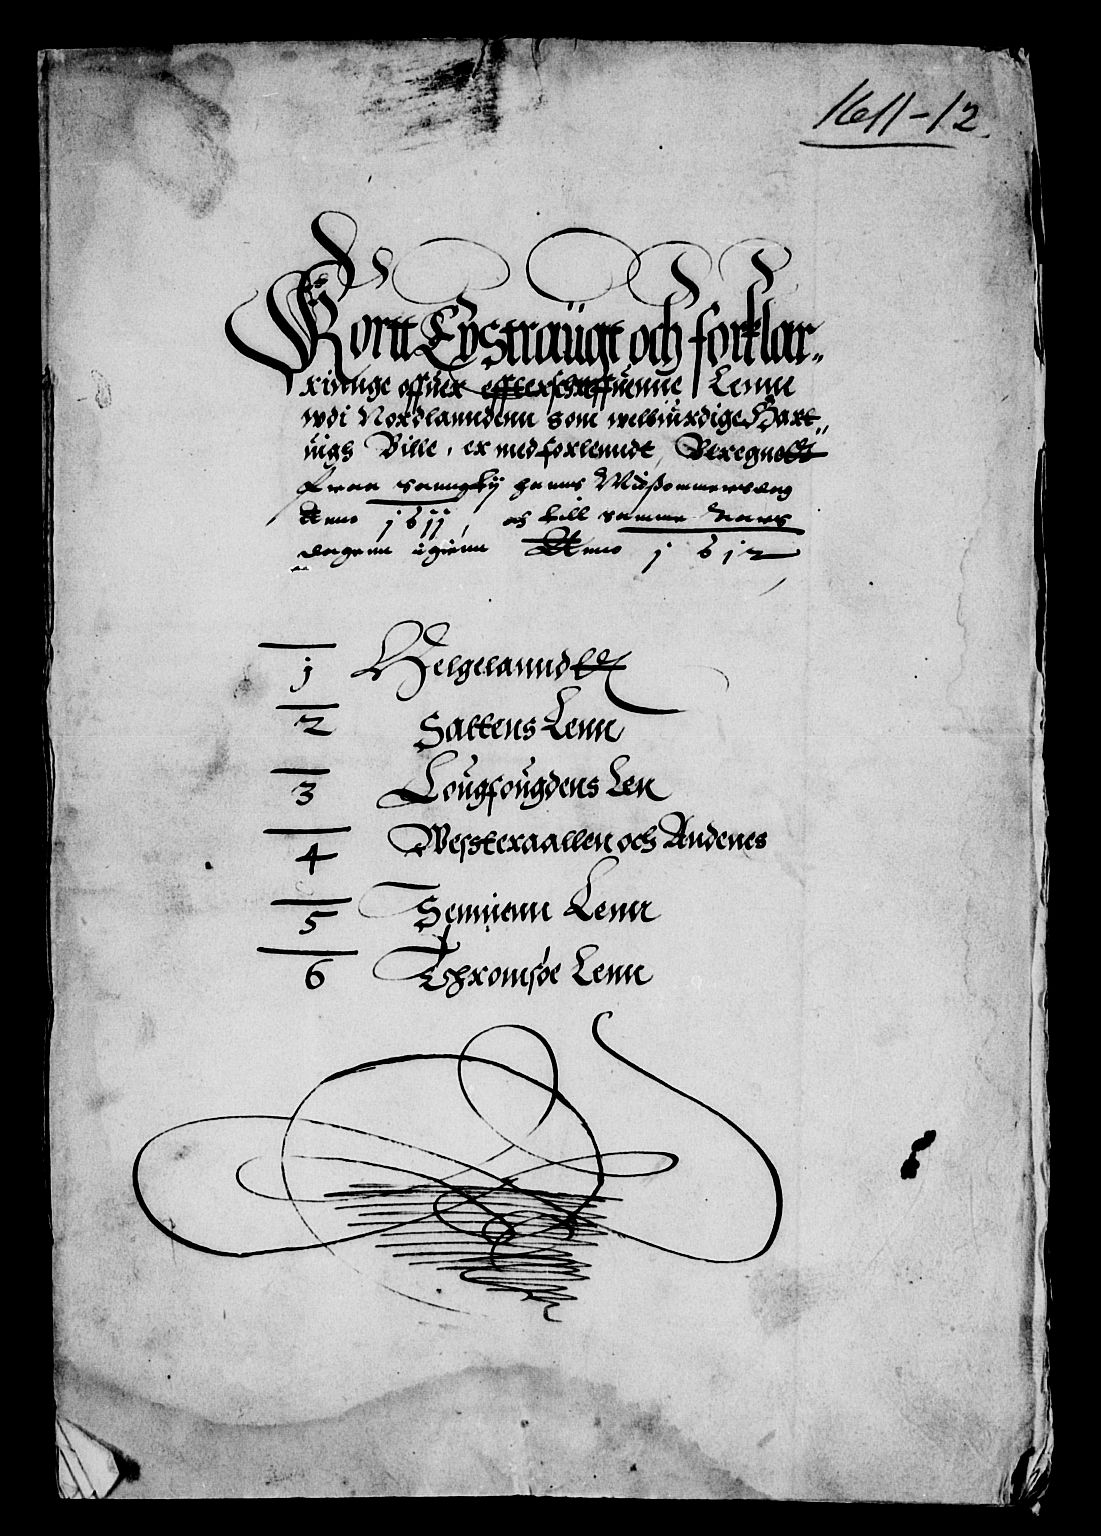 1611-12.
Kortt Extraügt och forklar„
ringe offuer effterschreffuenne Lenn
wdi Nordlanndenn som welbiurdige Hart„
uigh Bille, er med forlenndt, Beregnedt
fraa sanngty hanns Midsommersdag
Anno 1611, och till samme Aars
dagenn igienn Anno 1612
1 Helgelanndtt
2 Saltens Lenn
3 Lougfougdens Len
4 Westeraallen och Andenes
5 Sennienn Lenn
6 Thromsøe Lenn